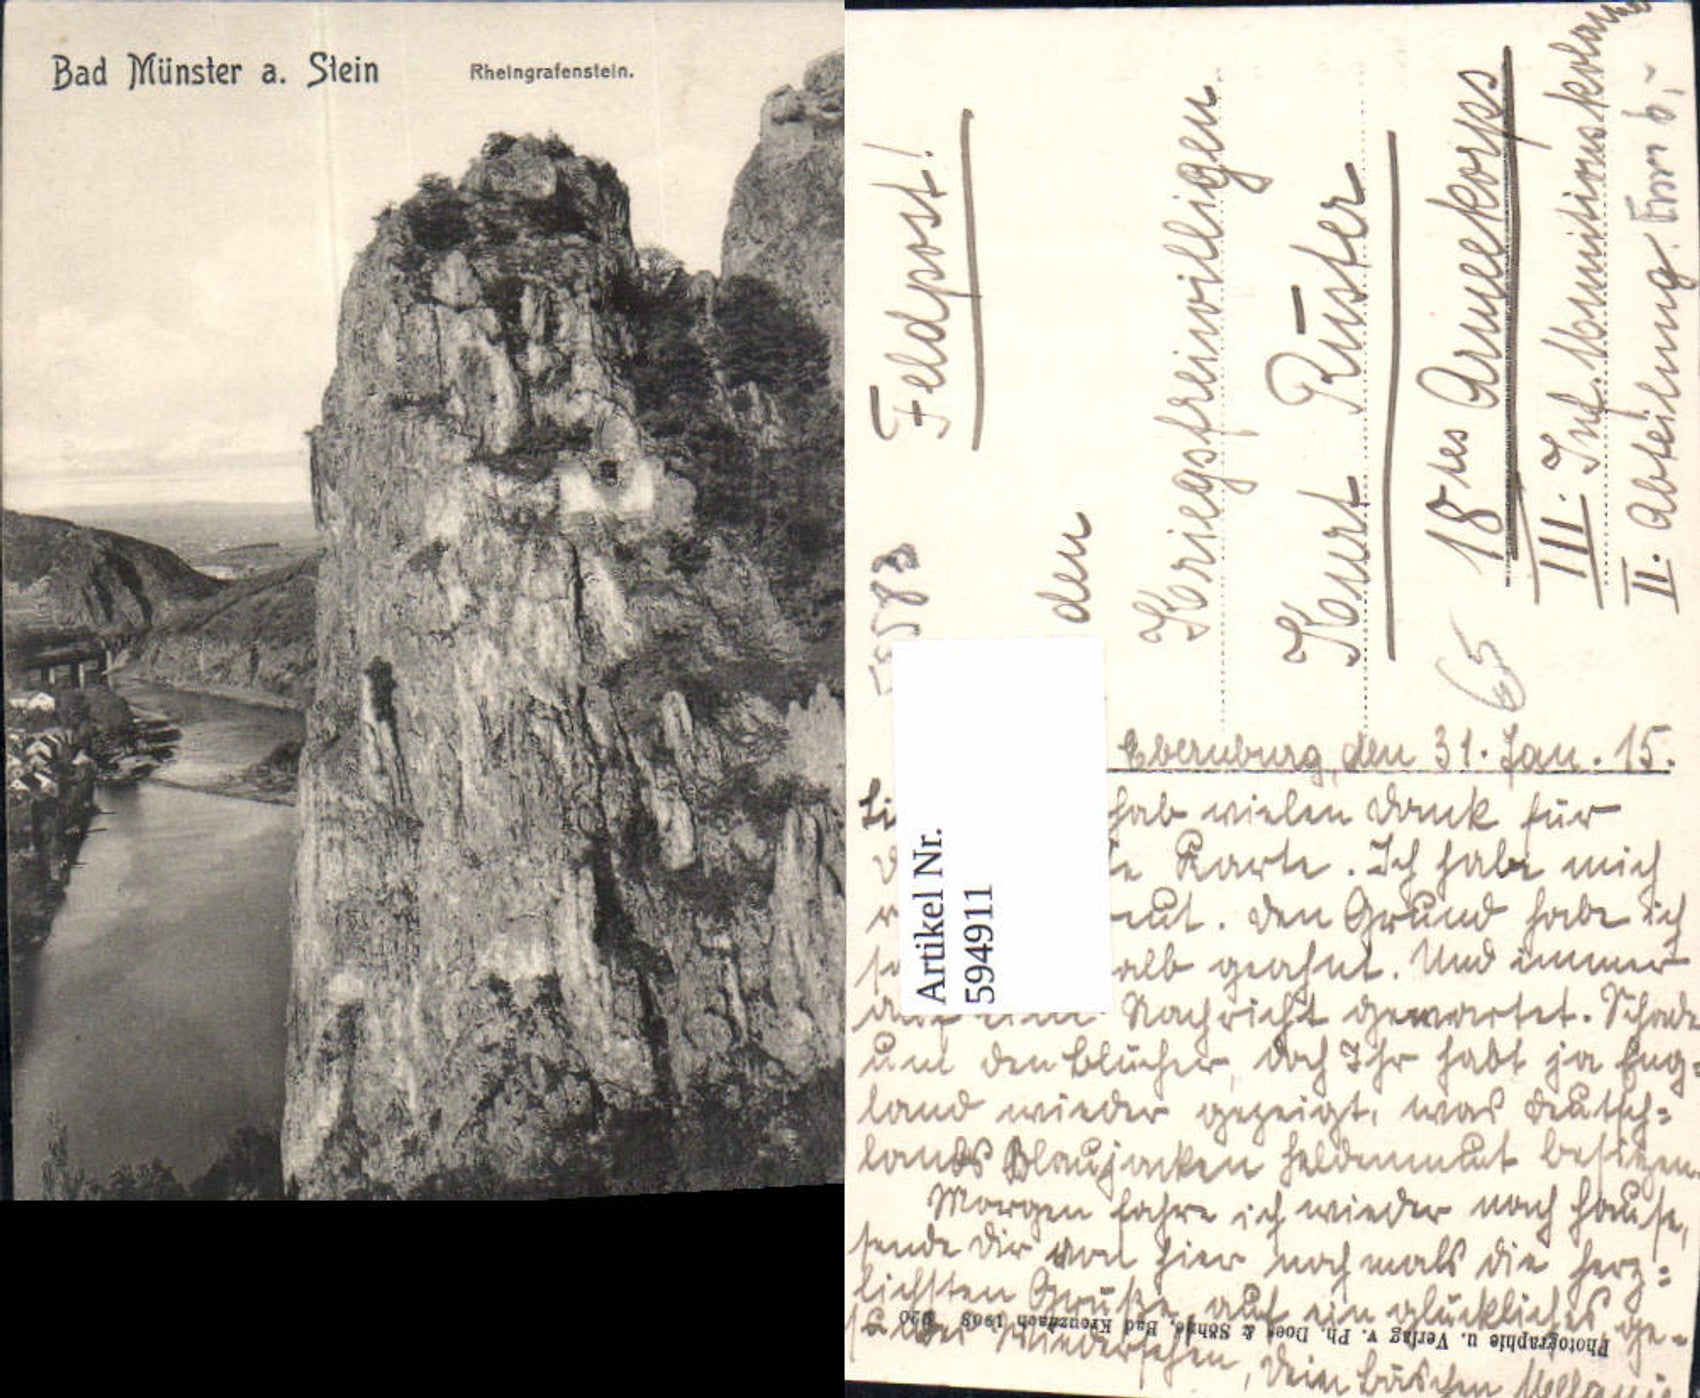 Bad Münster a. Stein
Rheingrafenstein.
Feldpost!
den
Kriegsfreiwilligen
Kurt Rüster
18tes Armeekorps
III. Inf. Munitionskolonne
II. Abteilung.
65
Artikel Nr.
594911
Ebernburg, den 31. Jan. 15.
hab vielen Dank für
Karte. Ich habe mich
Den Grund habe ich
geahnt. Und immer
auf eine Nachricht gewartet. Schade
um den Blücher, doch Ihr habt ja Eng=
land wieder gezeigt, was Deutsch=
lands Blaujacken Heldenmut besitzen.
Morgen fahre ich wieder nach Hause,
sende Dir von hier nochmals die herz=
lichsten Grüße, auf ein glückliches ge=
sundes Wiedersehen, Dein
Photographie u. Verlag v. Ph. Doer & Söhne, Bad Kreuznach 1908